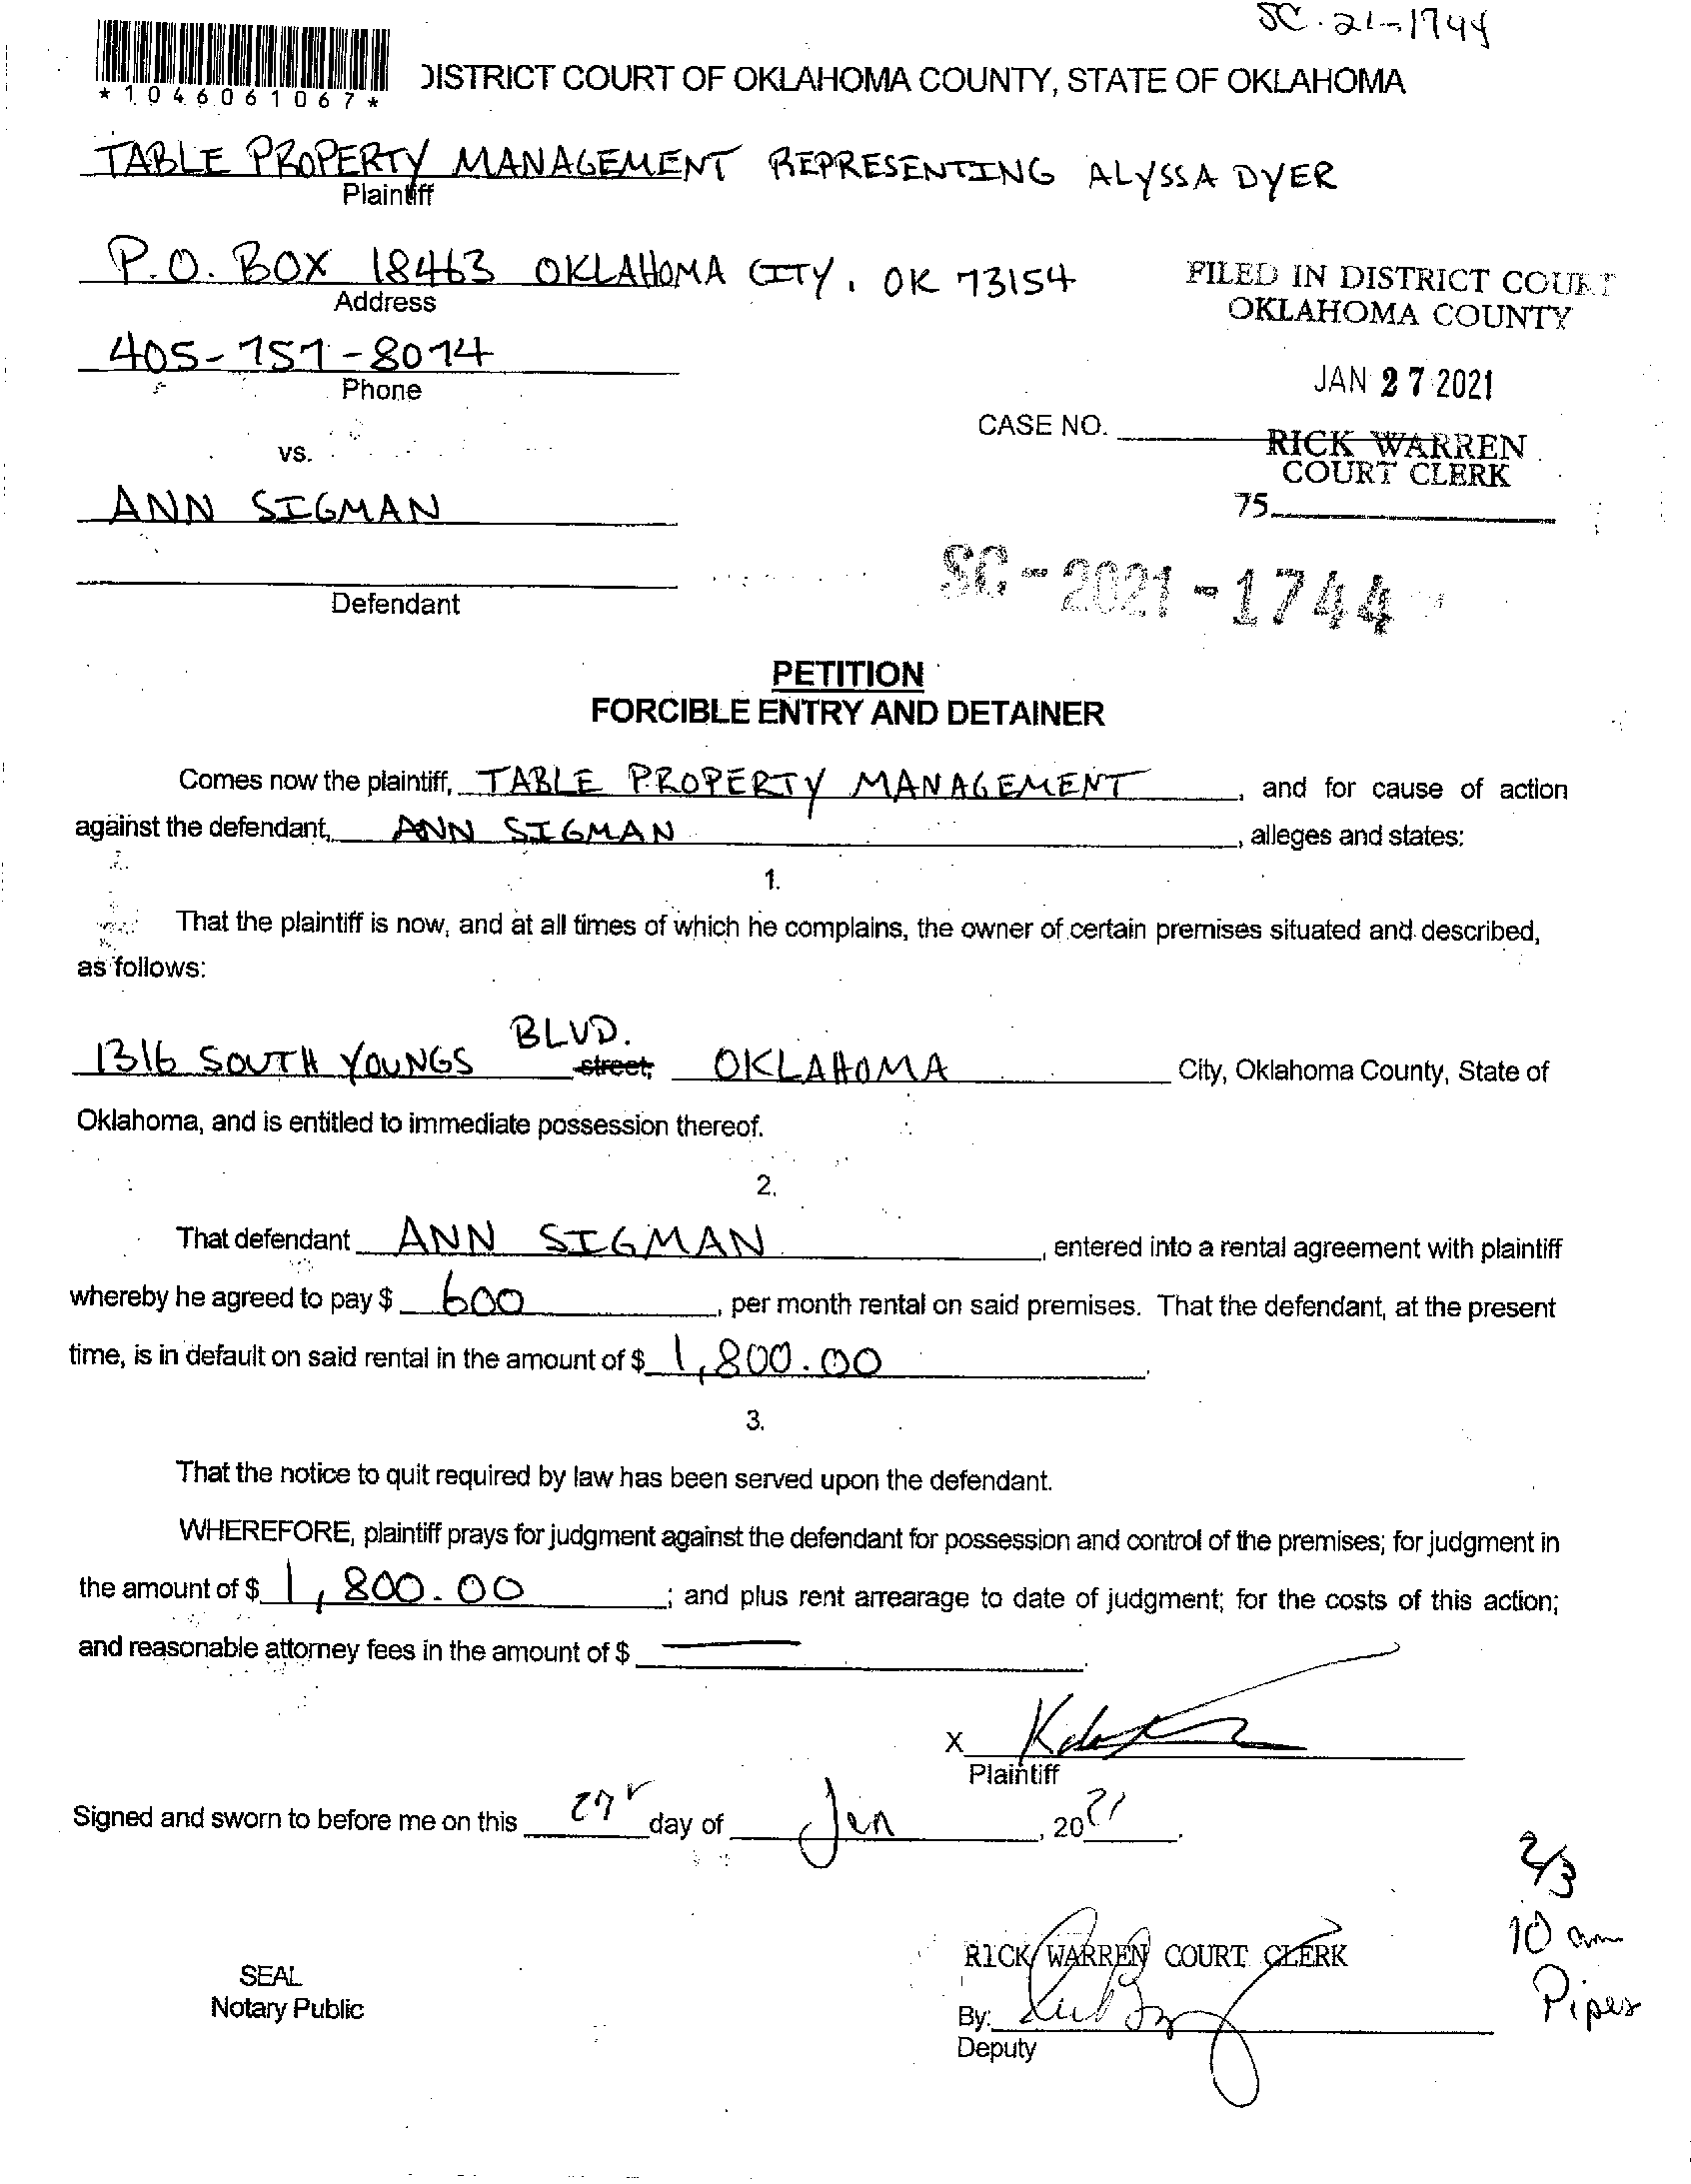 SC-21-1744
*1046061067*
DISTRICT COURT OF OKLAHOMA COUNTY, STATE OF OKLAHOMA
TABLE PROPERTY MANAGEMENT REPRESENTING ALYSSA DYER
Plaintiff
P.O. BOX 18463 OKLAHOMA CITY, OK 73154
Address
FILED IN DISTRICT COURT
OKLAHOMA COUNTY
405-757-8074
Phone
JAN 27 2021
CASE NO.
RICK WARREN
COURT CLERK
vs.
75
ANN SIGMAN
SC-2021-1744
Defendant
PETITION
FORCIBLE ENTRY AND DETAINER
Comes now the plaintiff, TABLE PROPERTY MANAGEMENT, and for cause of action
against the defendant, ANN SIGMAN, alleges and states:
1.
That the plaintiff is now, and at all times of which he complains, the owner of certain premises situated and described,
as follows:
1316 SOUTH YOUNGS BLVD. street, OKLAHOMA City, Oklahoma County, State of
Oklahoma, and is entitled to immediate possession thereof.
2.
That defendant ANN SIGMAN, entered into a rental agreement with plaintiff
whereby he agreed to pay $ 600, per month rental on said premises. That the defendant, at the present
time, is in default on said rental in the amount of $ 1,800.00.
3.
That the notice to quit required by law has been served upon the defendant.
WHEREFORE, plaintiff prays for judgment against the defendant for possession and control of the premises; for judgment in
the amount of $ 1,800.00; and plus rent arrearage to date of judgment; for the costs of this action;
and reasonable attorney fees in the amount of $ —.
X
Plaintiff
Signed and sworn to before me on this 27 day of Jan, 2021.
2/3
10 am
Pipes
RICK WARREN COURT CLERK
SEAL
Notary Public
By:
Deputy